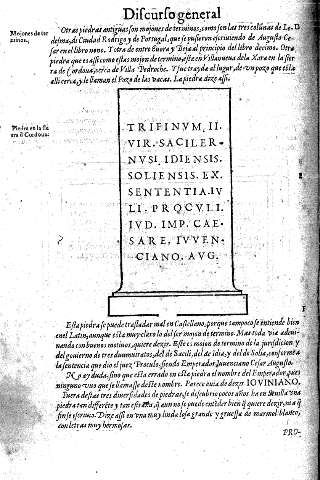 Discurso general
Mojones de terminos.
Otras piedras antiguas son mojones de terminos, como son las tres colunas de Ledesma, di Ciudad Rodrigo y de Portugal, que se pusieron
en el libro nono. Y otra de entre Euora y Beja al principio del libro decimo. Otra
piedra que es assi como estas mojon de termino, esta en Villanueua de la Xara en la sierra de Cordoua, cerca de Villa Pedroche. Y fue trayda al lugar, de un pozo que esta
alli cerca, y le llaman el Pozo de las vacas. La piedra dize assi.
Piedra en la sierra de Cordoua.
TRIFINVM. II
VIR. SACILER-
NVSI. IDIENSIS.
SOLIENSIS. EX.
SENTENTIA. IV
LI. PROCVLI.
IVD. IMP. CAE-
SARE. IVVEN-
CIANO. AVG.
Esta piedra se puede trasladar mal en Castellano, porque tampoco se entiende bien
en el Latin, aunque esta muy claro lo del ser mojon de termino. Mas toda via adeui-
nando con buenos motinos, quiere dezir. Este es mojon de termino de la jurisdicion y
del gouierno de tres duumuiratos, del de Sacili, del de idia, y del de Solia, conforme a
la sentencia que dio el juez Proculo, siendo Emperador Iuuenciano Cesar Augusto.
No ay duda, sino que esta errado en esta piedra el nombre del Emperador, pues
ninguno uuo que se llamasse deste nombre. Parece auia de dezir IOVINIANO.
Fuera destas tres diuersidades de piedras, se descubrio pocos años ha en Seuilla una
piedra tan differente y tan estraña, que aun no se puede entender bien que quiere dezir, ni a que
fin se escriuio. Dize assi en una muy linda losa grande y gruessa de marmol blanco,
con letras muy hermosas.
PRO-